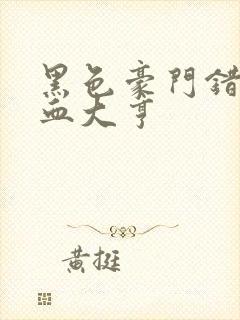 黑色豪門錯
血大亨
黃挺